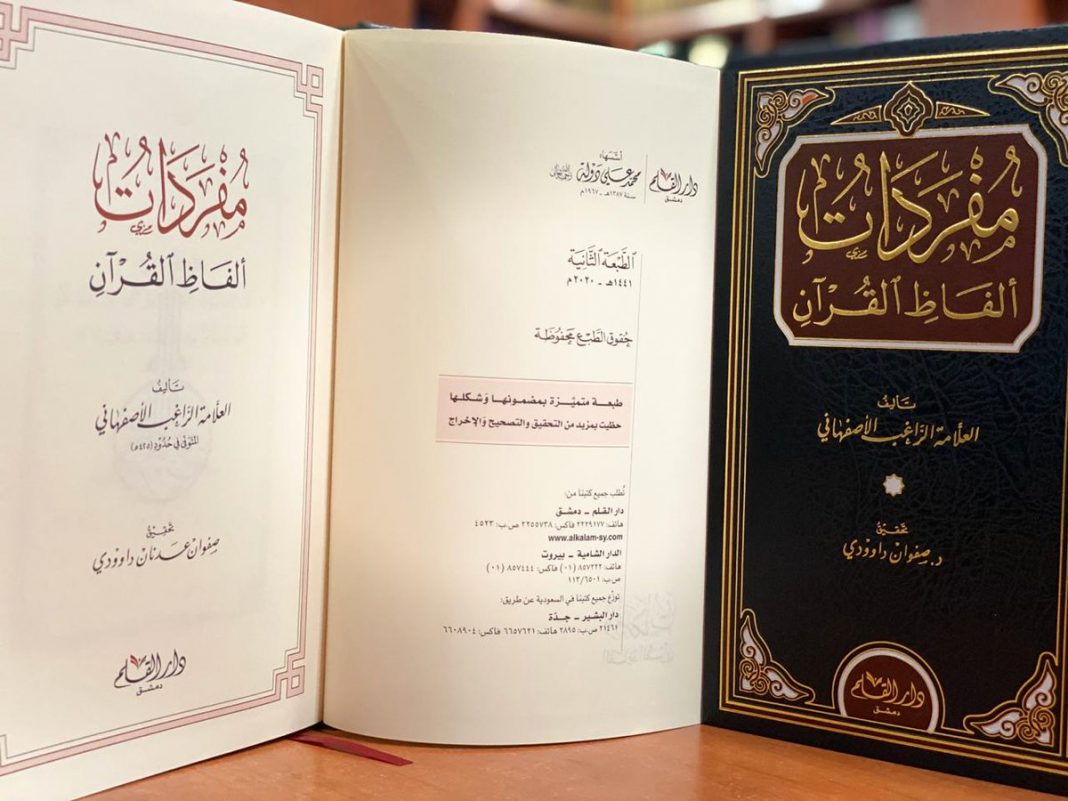 مُفْرَدَاتُ
أَلفَاظِ القُرْآنِ
تَأليفُ
العلَّامة الرَّاغب الأصفهاني
المتوفى في حُدُودِ (٤٢٥هـ)
تحقِيقُ
صَفوان عَدنان داوودي
دار القلم
دمشق
أسَّسَهَا
محمد علي دولة
سنة ١٣٨٧هـ - ١٩٦٧م
دار القلم
دمشق
الطَّبْعَة الثَّانِيَة
١٤٤١هـ - ٢٠٢٠م
حُقوق الطَّبْع مَحْفُوظَة
طبعة متميّزة بمضمونها وَشكلها
حظيت بمزيد من التحقيق والتصحيح وَالإخراج
تُطلب جميع كتبنا من:
دار القلم - دمشق
هاتف: ٢٢٢٩١٧٧ فاكس: ٢٢٥٥٧٣٨ ص.ب: ٤٥٢٣
www.alkalam-sy.com
الدار الشامية - بيروت
هاتف: ٨٥٧٢٢٢ (٠١) فاكس: ٨٥٧٤٤٤ (٠١)
ص.ب: ١١٣/٦٥٠١
توزّع جميع كتبنا في السعودية عن طريق:
دار البشير - جدّة
٢١٤٦١ ص.ب: ٢٨٩٥ هاتف: ٦٦٥٧٦٢١ فاكس: ٦٦٠٨٩٠٤
مُفْرَدَاتُ
أَلفَاظِ القُرْآنِ
تَأليفُ
العلَّامة الرَّاغب الأصفهاني
تحقِيقُ
د. صَفوان داوودي
دار القلم
دمشق